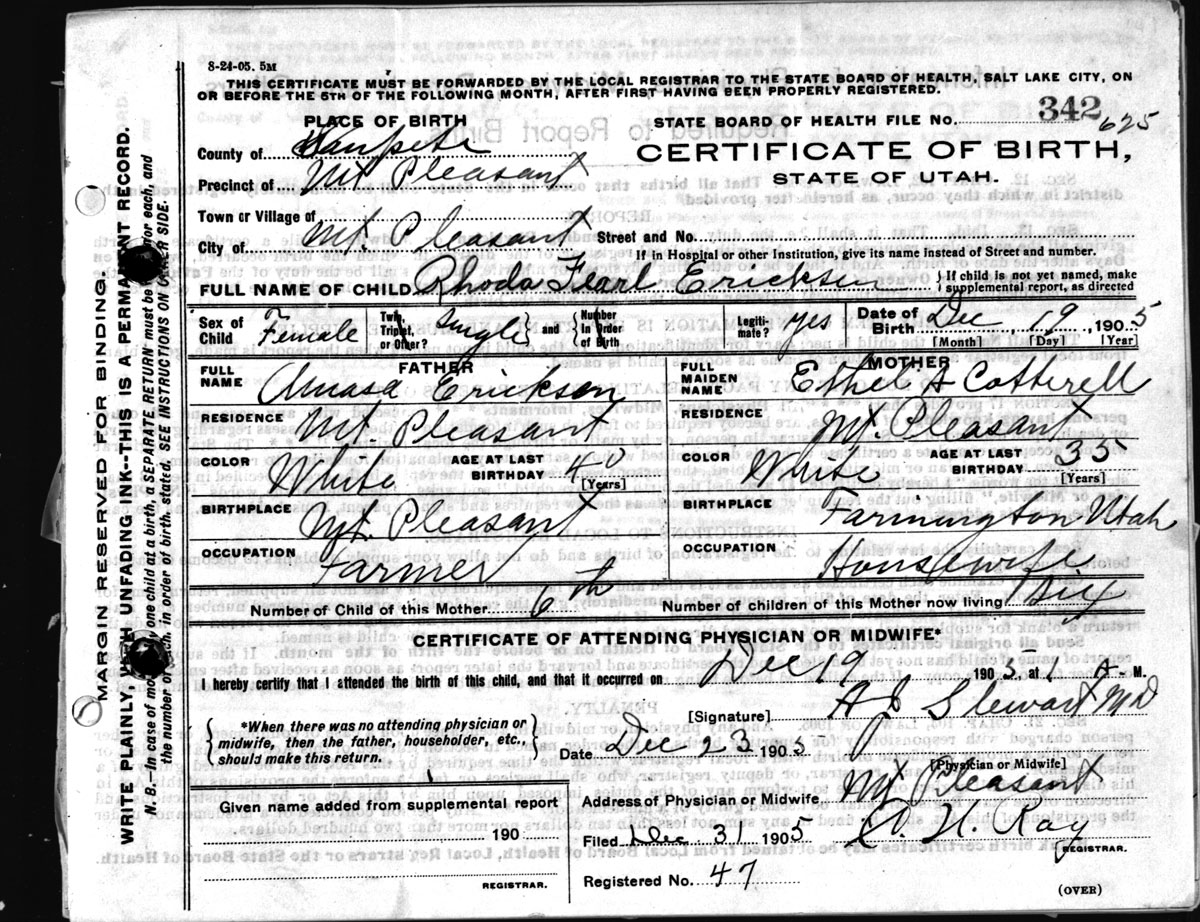 8-24-05. 5M
THIS CERTIFICATE MUST BE FORWARDED BY THE LOCAL REGISTRAR TO THE STATE BOARD OF HEALTH, SALT LAKE CITY, ON
OR BEFORE THE 5TH OF THE FOLLOWING MONTH, AFTER FIRST HAVING BEEN PROPERLY REGISTERED.
PLACE OF BIRTH
STATE BOARD OF HEALTH FILE No. 342 625
County of Sanpete
CERTIFICATE OF BIRTH,
Precinct of Mt Pleasant
STATE OF UTAH.
Town or Village of
City of Mt Pleasant Street and No.
If in Hospital or other Institution, give its name instead of Street and number.
FULL NAME OF CHILD Rhoda Erickson { If child is not yet named, make
supplemental report, as directed
Sex of Child Female Twin, Triplet, or Other? Single } and { Number In Order of Birth Legiti-mate? yes Date of Birth Dec 19, 1905
[Month] [Day] [Year]
FATHER MOTHER
FULL NAME Amasa Erickson FULL MAIDEN NAME Ethel A Cotterell
RESIDENCE Mt. Pleasant RESIDENCE Mt. Pleasant
COLOR White AGE AT LAST BIRTHDAY 40 [Years] COLOR White AGE AT LAST BIRTHDAY 35 [Years]
BIRTHPLACE Mt Pleasant BIRTHPLACE Farmington Utah
OCCUPATION Farmer OCCUPATION Housewife
Number of Child of this Mother 6th Number of children of this Mother now living Six
CERTIFICATE OF ATTENDING PHYSICIAN OR MIDWIFE*
I hereby certify that I attended the birth of this child, and that it occurred on Dec 19 1905, at 1 A. M.
[Signature] Stewart MD
{ *When there was no attending physician or
midwife, then the father, householder, etc.,
should make this return. }
Date Dec 23 1905
[Physician or Midwife]
Given name added from supplemental report
Address of Physician or Midwife Mt Pleasant
190
Filed Dec 31 1905 Ray
REGISTRAR.
REGISTRAR.
Registered No. 47
(OVER)
MARGIN RESERVED FOR BINDING.
WRITE PLAINLY, WITH UNFADING INK--THIS IS A PERMANENT RECORD.
N. B.—In case of more than one child at a birth, a SEPARATE RETURN must be made for each, and
the number of each, in order of birth, stated. SEE INSTRUCTIONS ON OTHER SIDE.